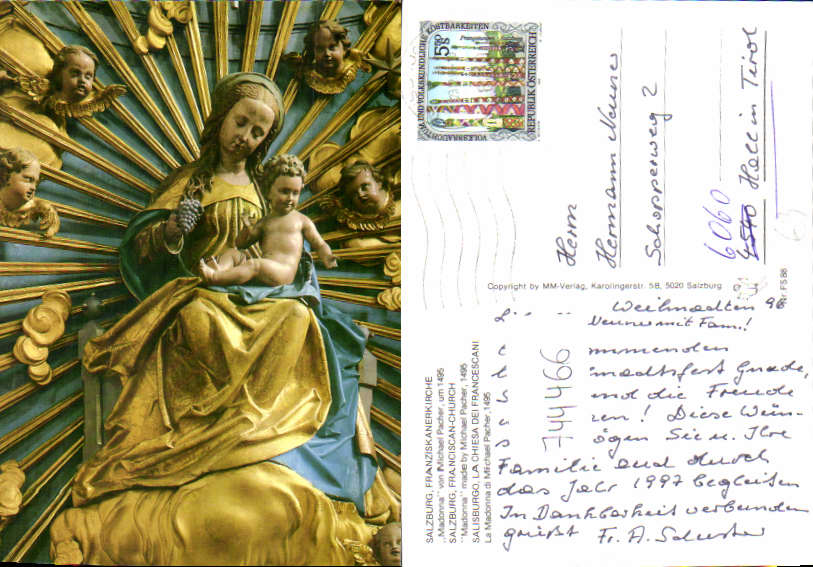 VOLKSBRAUCHTUM UND VOLKSKUNDLICHE KOSTBARKEITEN
5S
REPUBLIK ÖSTERREICH
Herrn
Hermann
Schopperweg 2
6060
Hall in Tirol
Copyright by MM-Verlag, Karolingerstr. 5B, 5020 Salzburg
Nr. FS 86
SALZBURG, FRANZISKANERKIRCHE
„Madonna" von Michael Pacher, um 1495
SALZBURG, FRANCISCAN-CHURCH
"Madonna" made by Michael Pacher, 1495
SALISBURGO, LA CHIESA DEI FRANCESCANI
La Madonna di Michael Pacher, 1495
744466
Weihnachten 96
mit Fam.!
mmenden
nachtsfest Gnade,
und die Freude
! Diese
ögen Sie u. Ihre
Familie und durch
das Jahr 1997 begleiten
In Dankbarkeit verbunden
grüßt Fr. A. Schuster